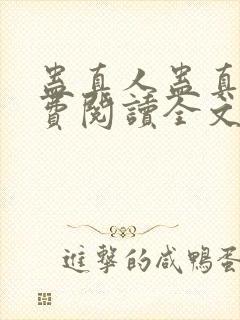 蛊真人蛊真
費閱讀全文
進擊的咸鴨蛋